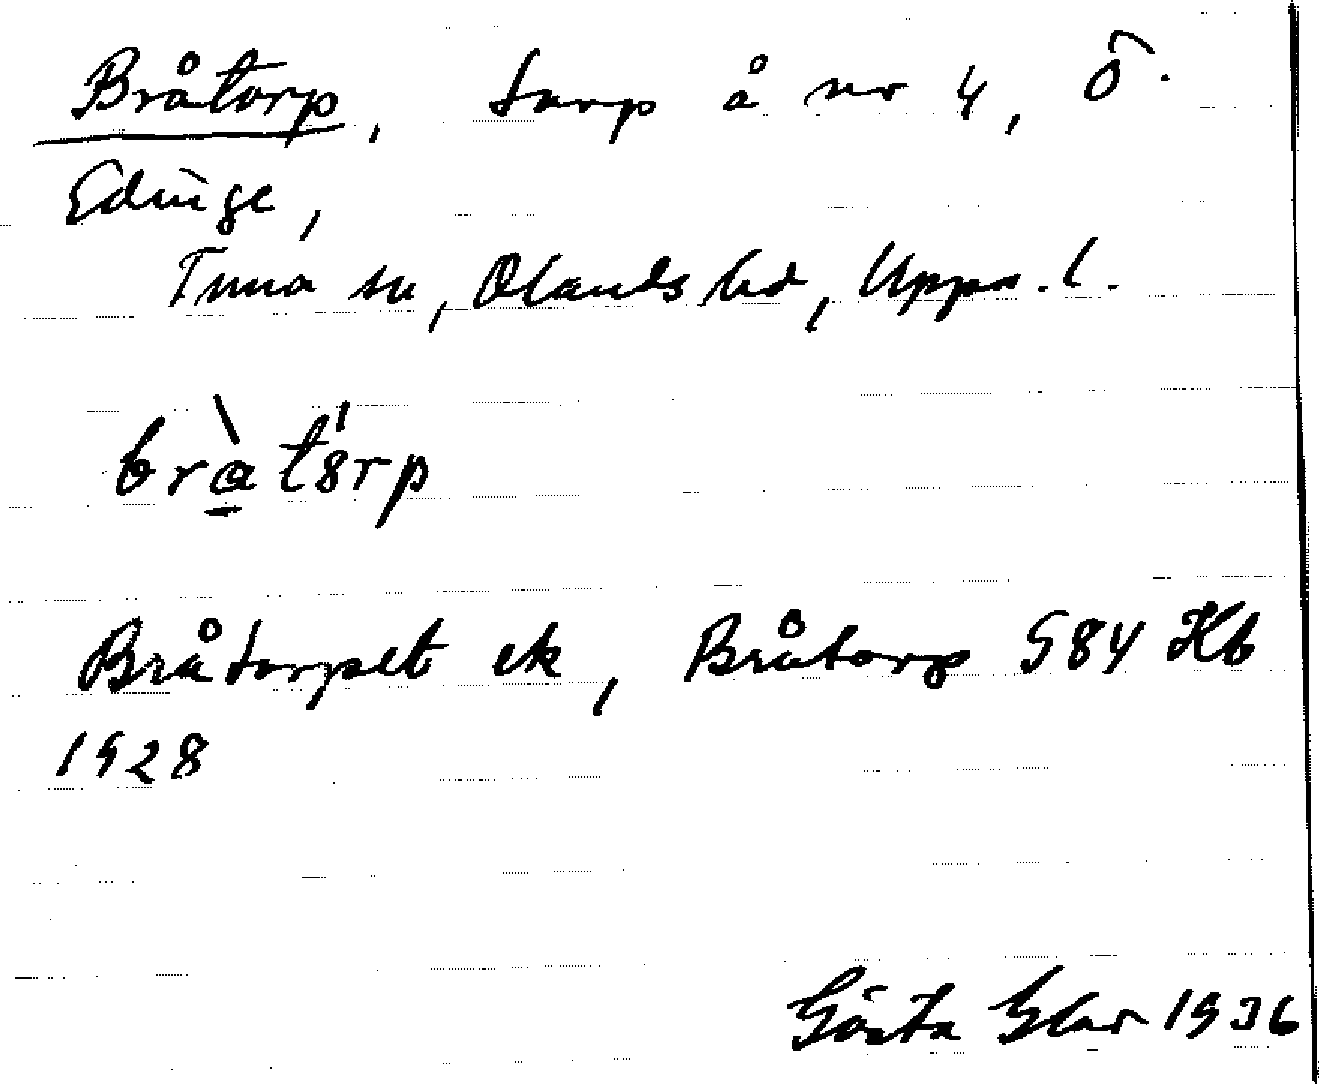 Bråtorp, torp å nr 4, Ö.
Edinge,
Tuna sn, Olands hd, Upps. l.
bràtórp
Bråtorpet ek, Bråtorp 584 Hb
1928
Gösta 1936